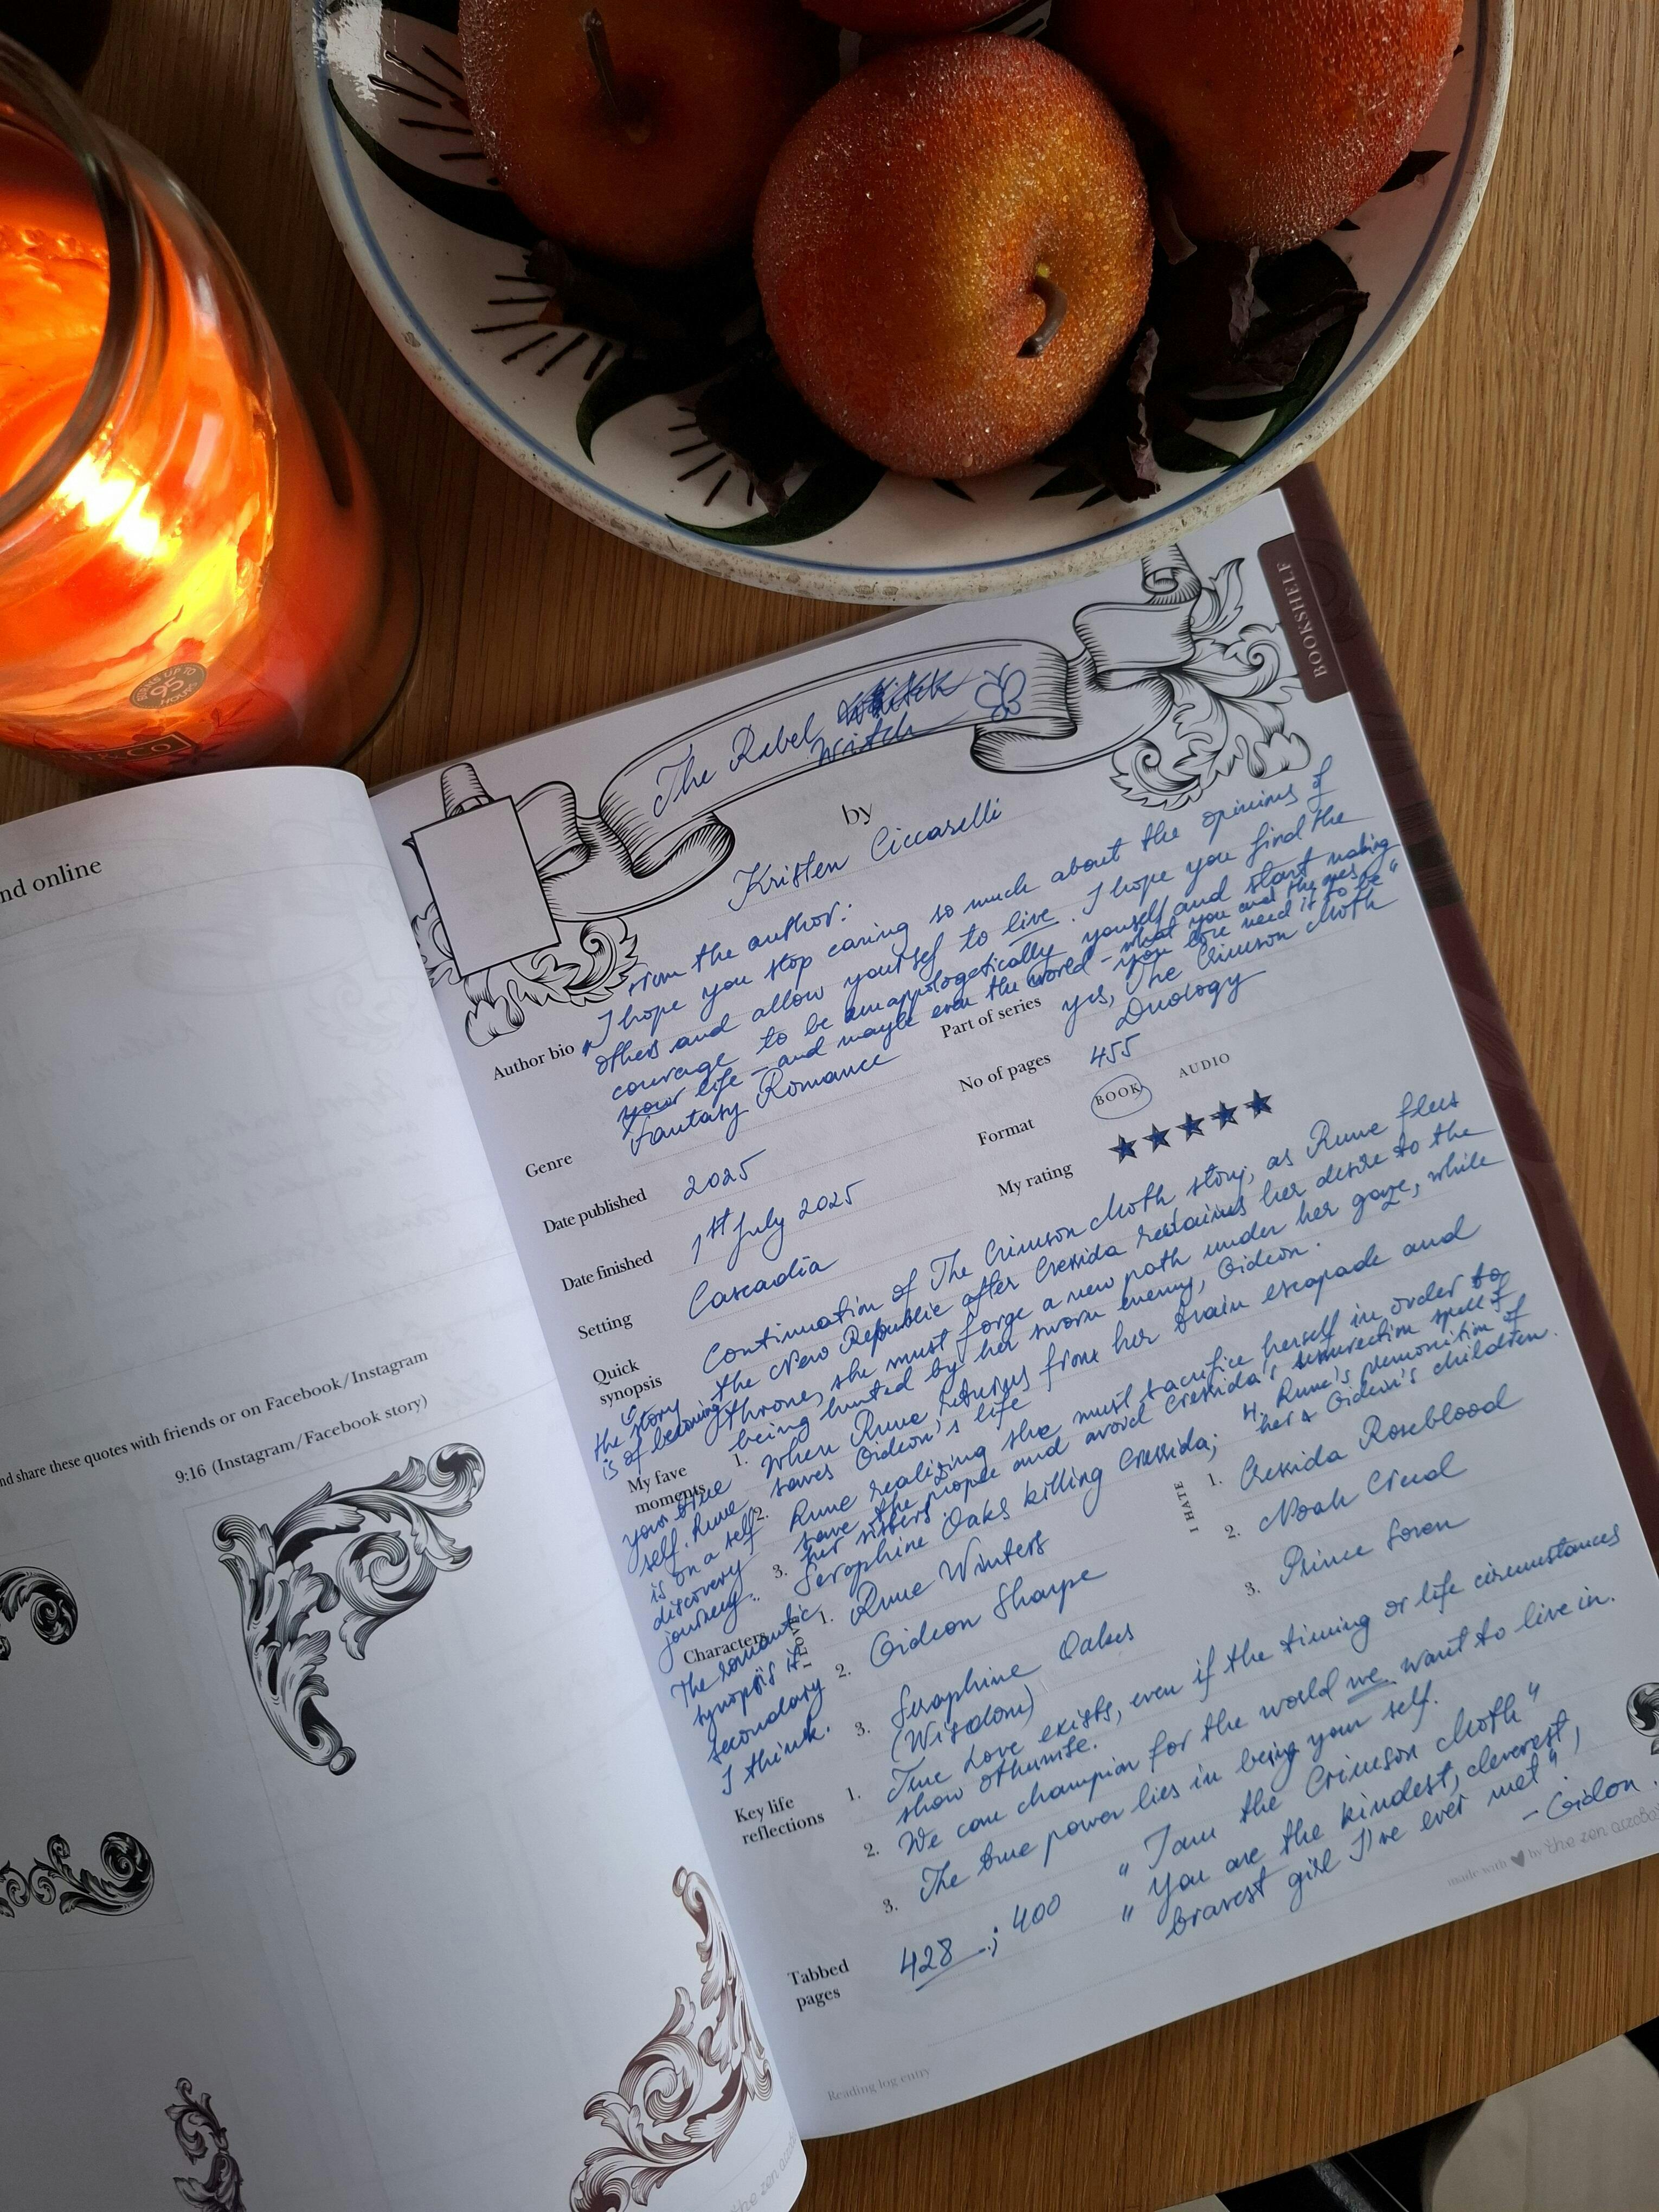 BURNS UP TO
95
HOURS
nd online
nd share these quotes with friends or on Facebook/Instagram
9:16 (Instagram/Facebook story)
BOOKSHELF
The Rebel
Witch
by
Kristen Ciccarelli
From the author:
"I hope you stop caring so much about the opinions of
others and allow yourself to live. I hope you find the
courage to be unappologetically yourself and start making
your life – and maybe even the world – what you and the ones
you love need it to be"
Author bio
Genre Fantasy Romance
Part of series yes, The Crimson Moth
Duology
Date published 2025
No of pages 455
Date finished 1st July 2025
Format BOOK AUDIO
Setting Cascadia
My rating ★★★★★
Quick
synopsis
Continuation of The Crimson Moth story, as Rune flees
the New Republic after Cressida her desire to the
throne, she must forge a new path under her gaze, while
being hunted by her sworn enemy, Gideon.
the story
is of becoming
your true
self. Rune
is on a self
discovery
journey.
The romantic
synopsis is
secondary
I think.
My fave
moments
1. When Rune returns from her train escapade and
saves Gideon's life
2. Rune realizing she must sacrifice herself in order to
save the people and avoid Cressida's resurrection spell of
her sisters
3. Seraphine Oaks killing Cressida;
4. Rune's premonition of
her & Gideon's children.
Characters
I LOVE
1. Rune Winters
2. Gideon Sharpe
3. Seraphine Oakes
(Wisdom)
I HATE
1. Cressida Roseblood
2. Noah Creed
3. Prince Soren
Key life
reflections
1. True Love exists, even if the timing or life circumstances
show otherwise.
2. We can champion for the world we want to live in.
3. The true power lies in being your self.
Tabbed
pages
428; 400
" I am the Crimson Moth "
" You are the kindest, cleverest,
bravest girl I've ever met",
– Gidon.
made with ♥ by the zen acrobat
Reading log entry
the zen acrobat